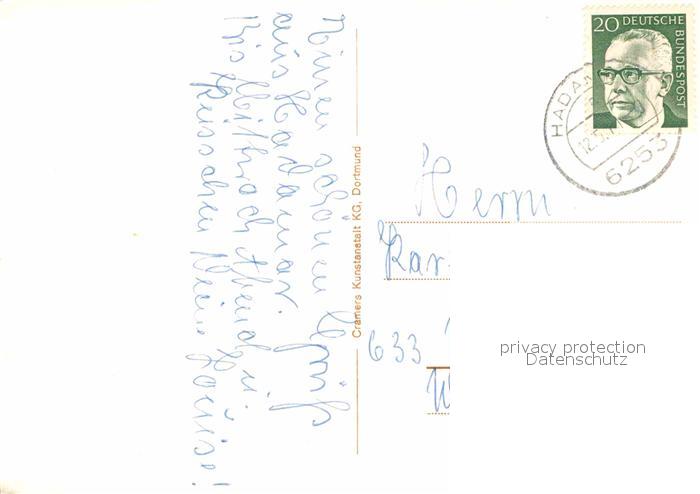 Einen schönen Gruß
aus Hadamar.
Bis Mittwoch Abend u.
Deine Louise!
Cramers Kunstanstalt KG, Dortmund
20 DEUTSCHE
BUNDESPOST
HADAM
12.5.
6253
Herrn
Kar
633
W
privacy protection
Datenschutz